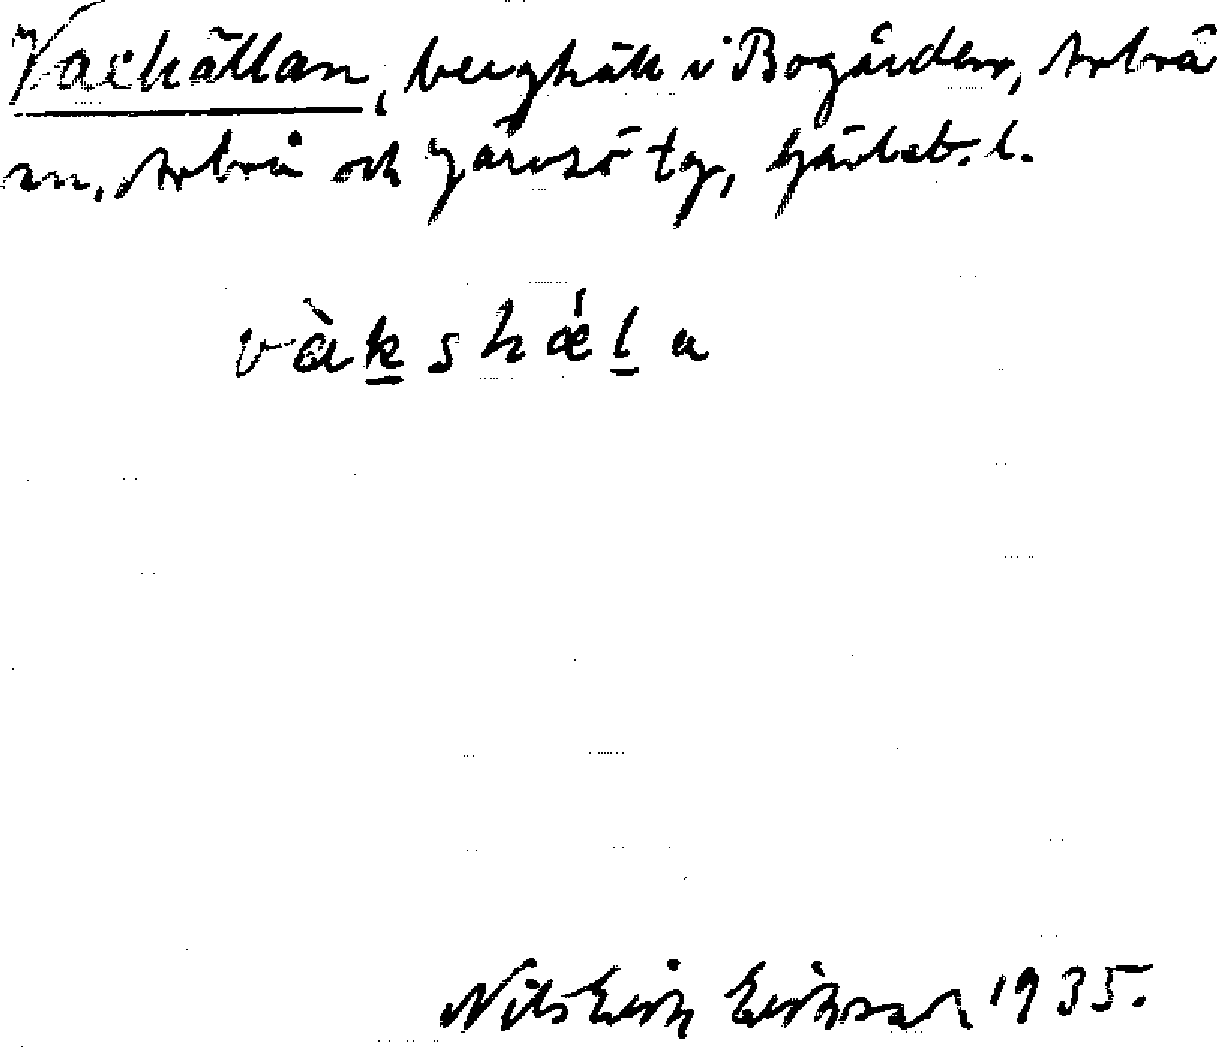 Vaxhällan, berghäll i Bogården, Arbrå
sn, Arbrå och Järvsö tg, Gävleb. l.
vàkshǽla
Nils Erik Eriksson 1935.